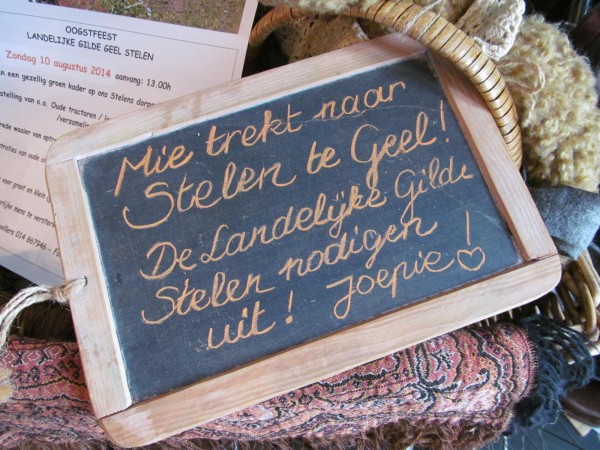 OOGSTFEEST
LANDELIJKE GILDE GEEL STELEN
Zondag 10 augustus 2014 aanvang: 13.00
en gezellig groen kader op ons Stelens dorps
stelling van o.a. Oude tractoren /
/verzamelin
rede waaier van optr
straties van oude a
voor groot en klein
rlijke mens te verster
willers 014 867946 - Fa
Mie trekt naar
Stelen te Geel!
De Landelijke Gilde
Stelen nodigen
uit! Joepie!